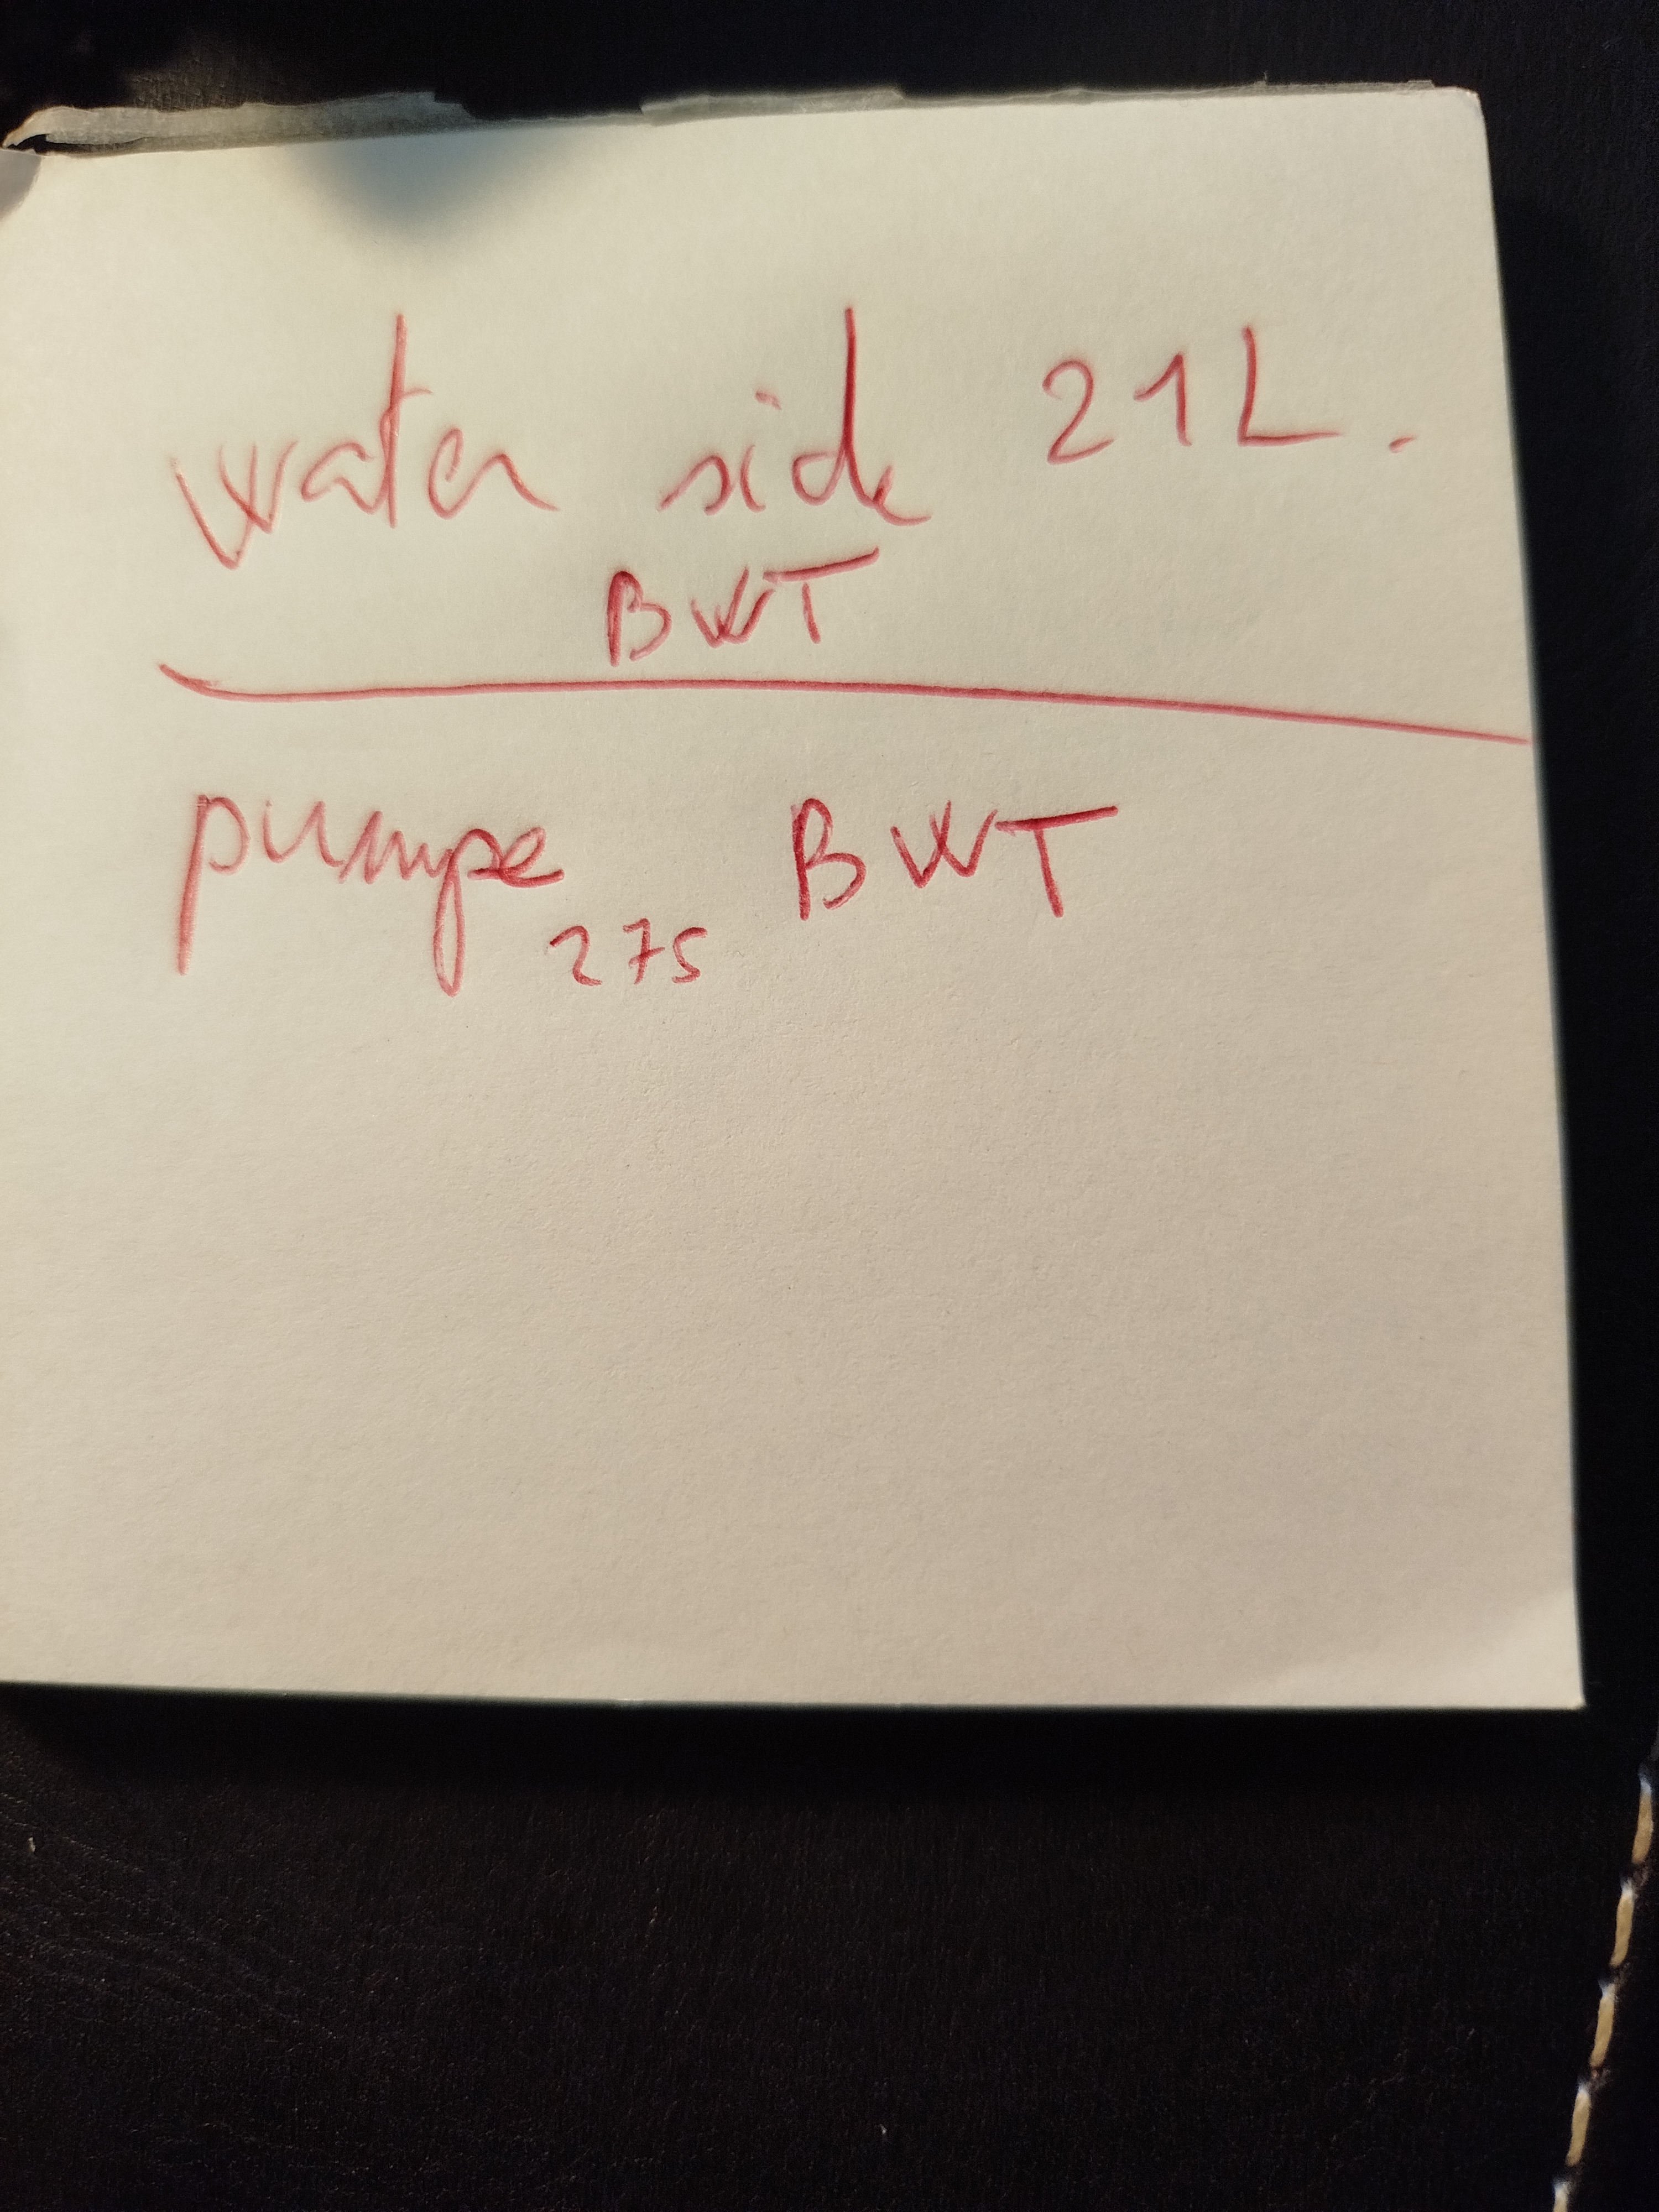 water side 21L.
BWT
pumpe BWT
275